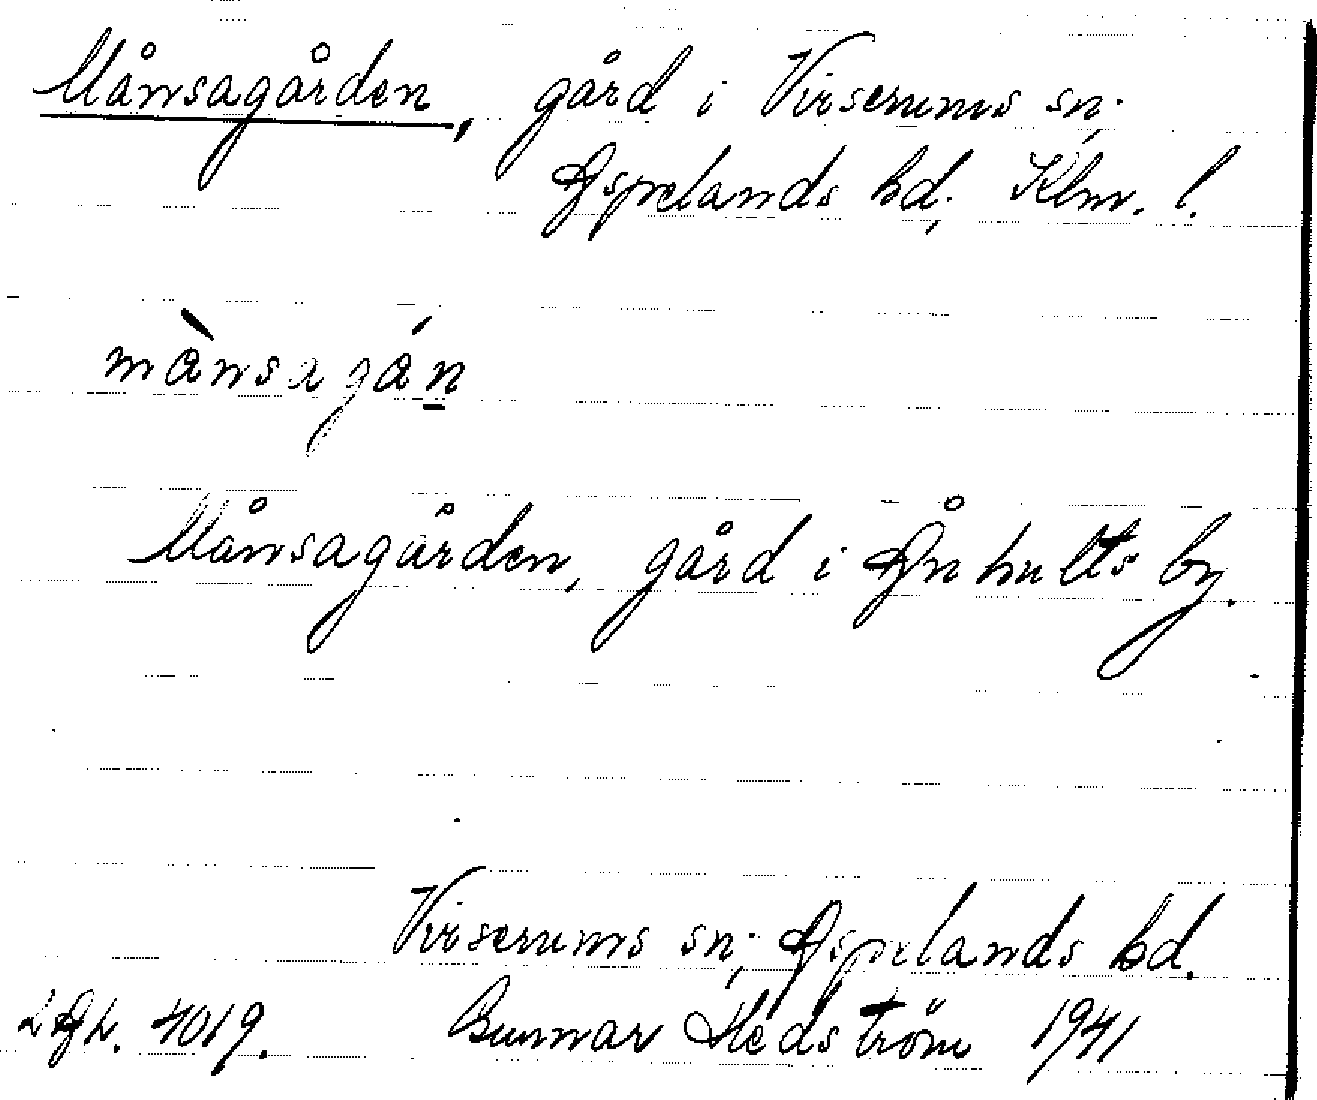 Månsagården, gård i Virserums sn;
Aspelands hd; Klm. l.
mànsagán
Månsagården, gård i Ånhults by.
Virserums sn; Aspelands hd.
LAL. 4019. Gunnar Hedström 1941